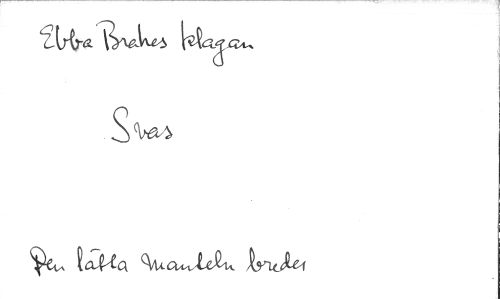 Ebba Brahes klagan
Svas
Den lätta manteln bredes